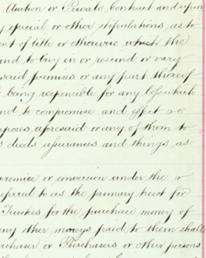 Auction or Private Contract and upon
y special or other stipulations as to
ce of title or otherwise which the
and to buy in or rescind or vary
said premises or any part thereof
being responsible for any loss which
and to compromise and effect
poses aforesaid or any of them to
deeds assurances and things as
premise or conversion under the
referred to as the primary trust for
Trustees for the purchase money of
any other moneys paid to them shall
rchaser or Purchasers or other persons